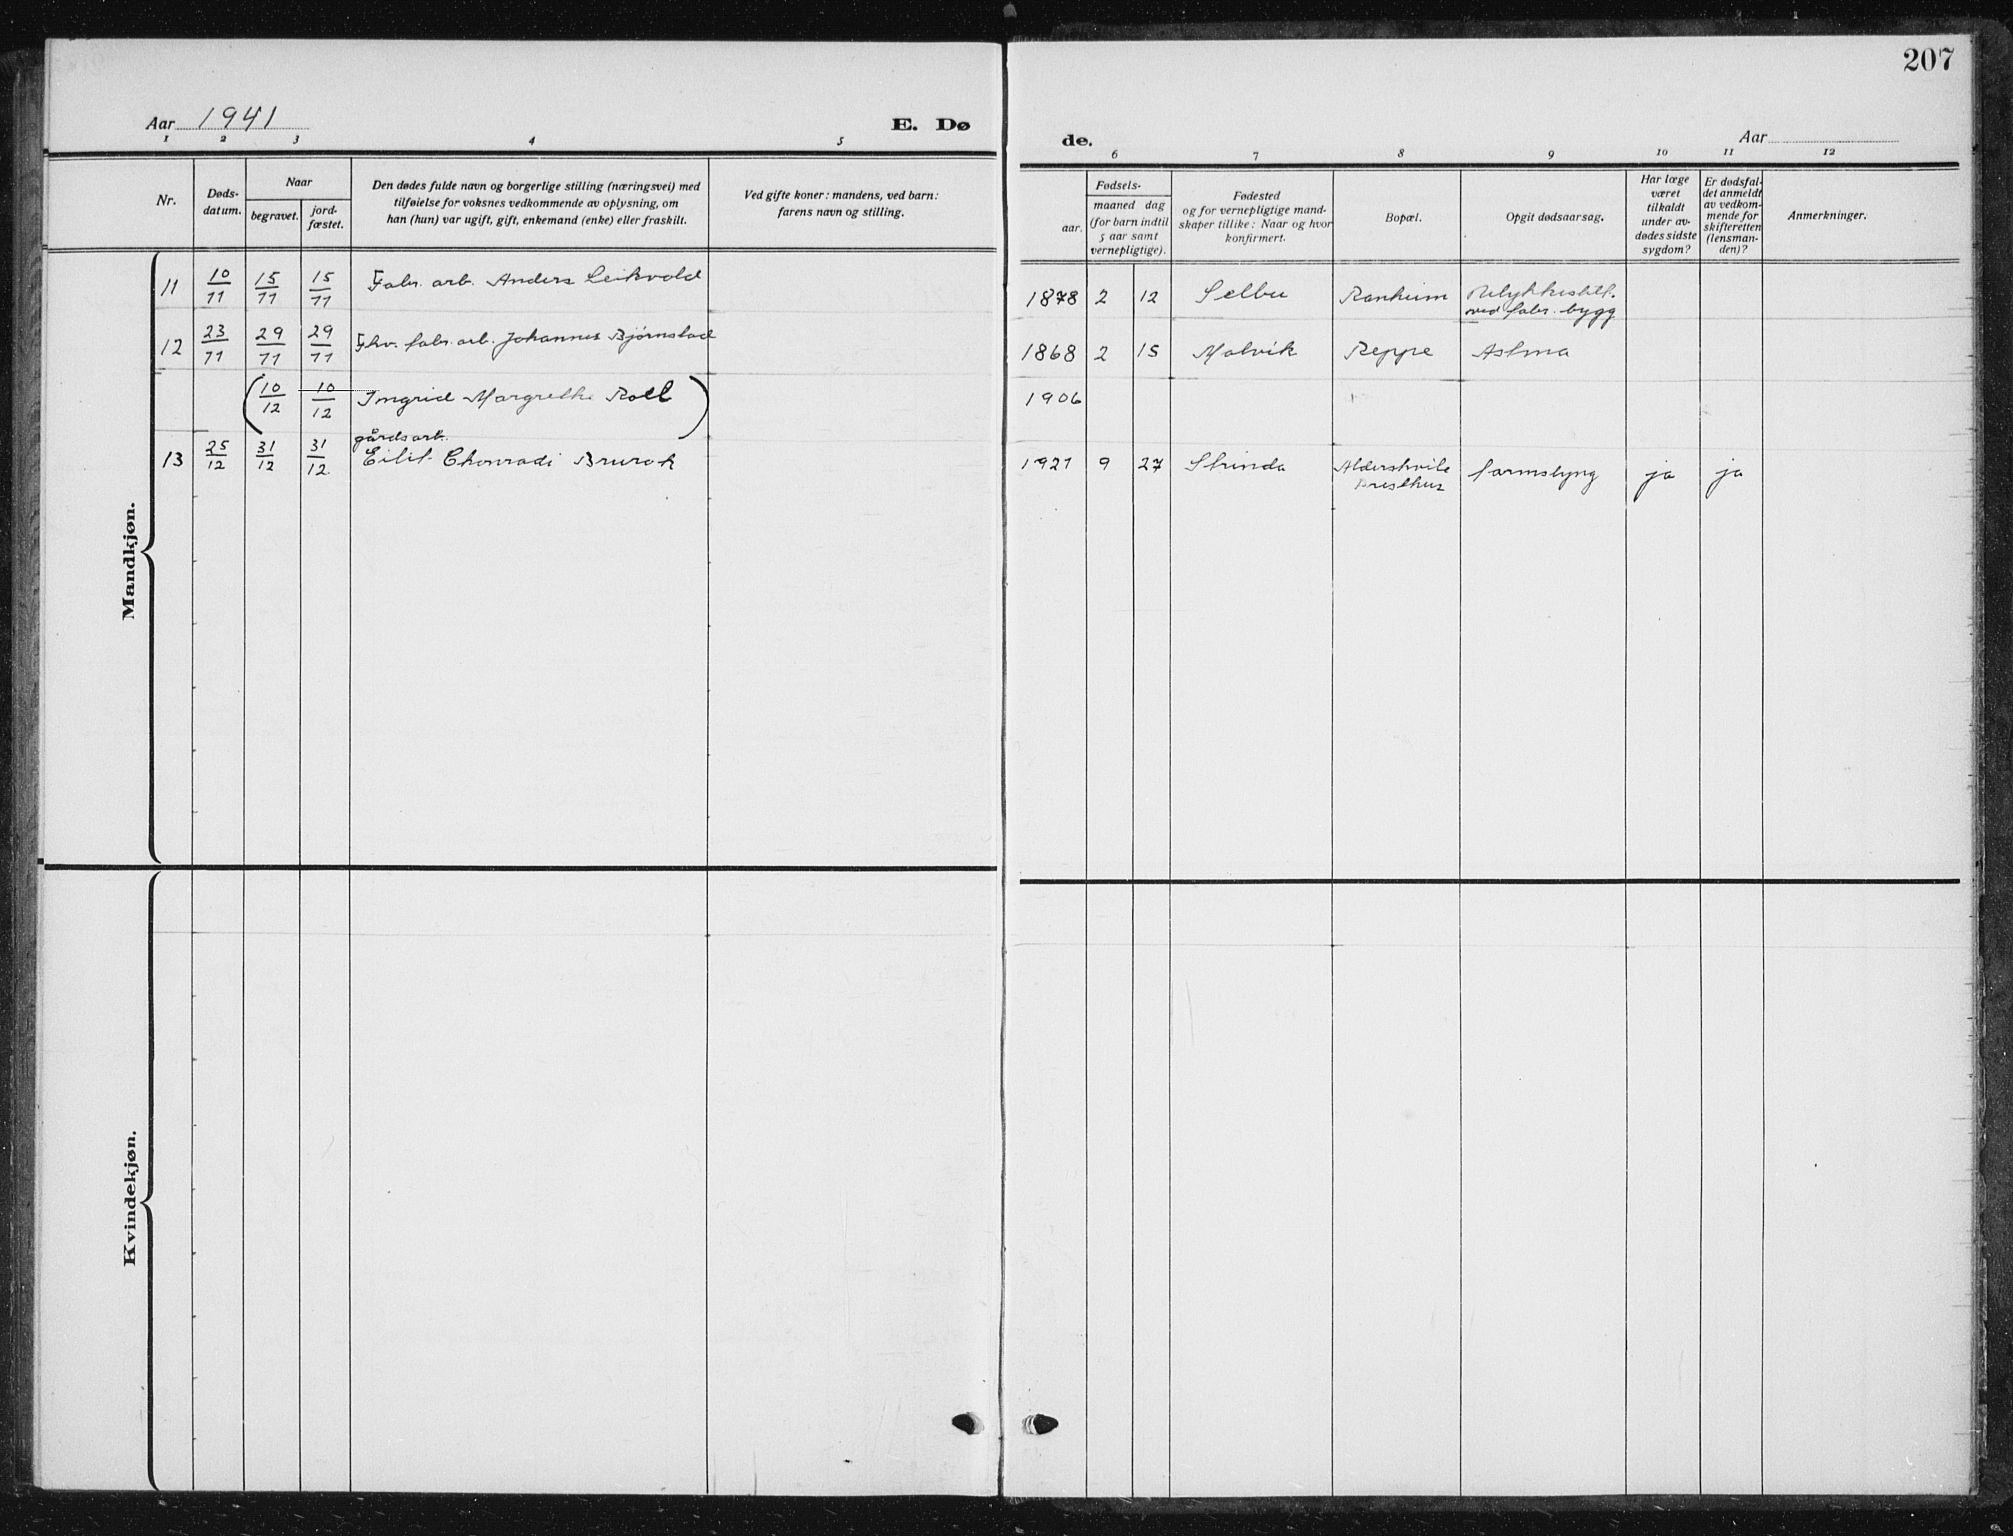 207
Aar 1941
E. Dø
de.
Aar
1 2 3 4 5
6 7 8 9 10 11 12
Nr.
Døds-
datum.
Naar
begravet.
jord-
fæstet.
Den dødes fulde navn og borgerlige stilling (næringsvei) med
tilføielse for voksnes vedkommende av oplysning, om
han (hun) var ugift, gift, enkemand (enke) eller fraskilt.
Ved gifte koner: mandens, ved barn:
farens navn og stilling.
Fødsels-
aar.
maaned dag
(for barn indtil
5 aar samt
vernepligtige).
Fødested
og for vernepligtige mand-
skaper tillike: Naar og hvor
konfirmert.
Bopæl.
Opgit dødsaarsag.
Har læge
været
tilkaldt
under av-
dødes sidste
sygdom?
Er dødsfal-
det anmeldt
av vedkom-
mende for
skifteretten
(lensman-
den)?
Anmerkninger.
Mandkjøn.
11 10/11 15/11 15/11 Fabr. arb. Anders Leikvold 1878 2 12 Selbu Ranheim Ulykkestilf.
ved fabr. bygg
12 23/11 29/11 29/11 Fhv. fabr. arb. Johannes Bjørnstad 1868 2 15 Malvik Reppe Astma
(10/12 10/12 Ingrid Margrethe Roll) 1906
gårdsarb.
13 25/12 31/12 31/12 Eilif Chonradi Brurok 1921 9 27 Strinda Aldershvile
Presthus tarmslyng ja ja
Kvindekjøn.